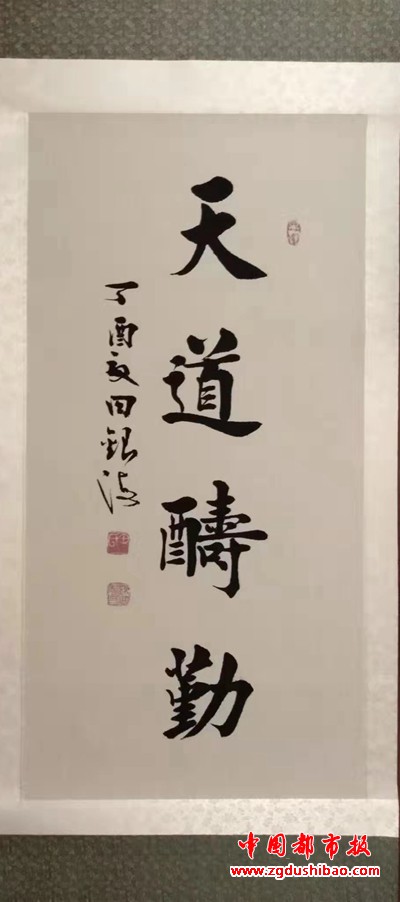 天道醻勤
丁酉夏田銀
中国都市报
www.zgdushibao.com